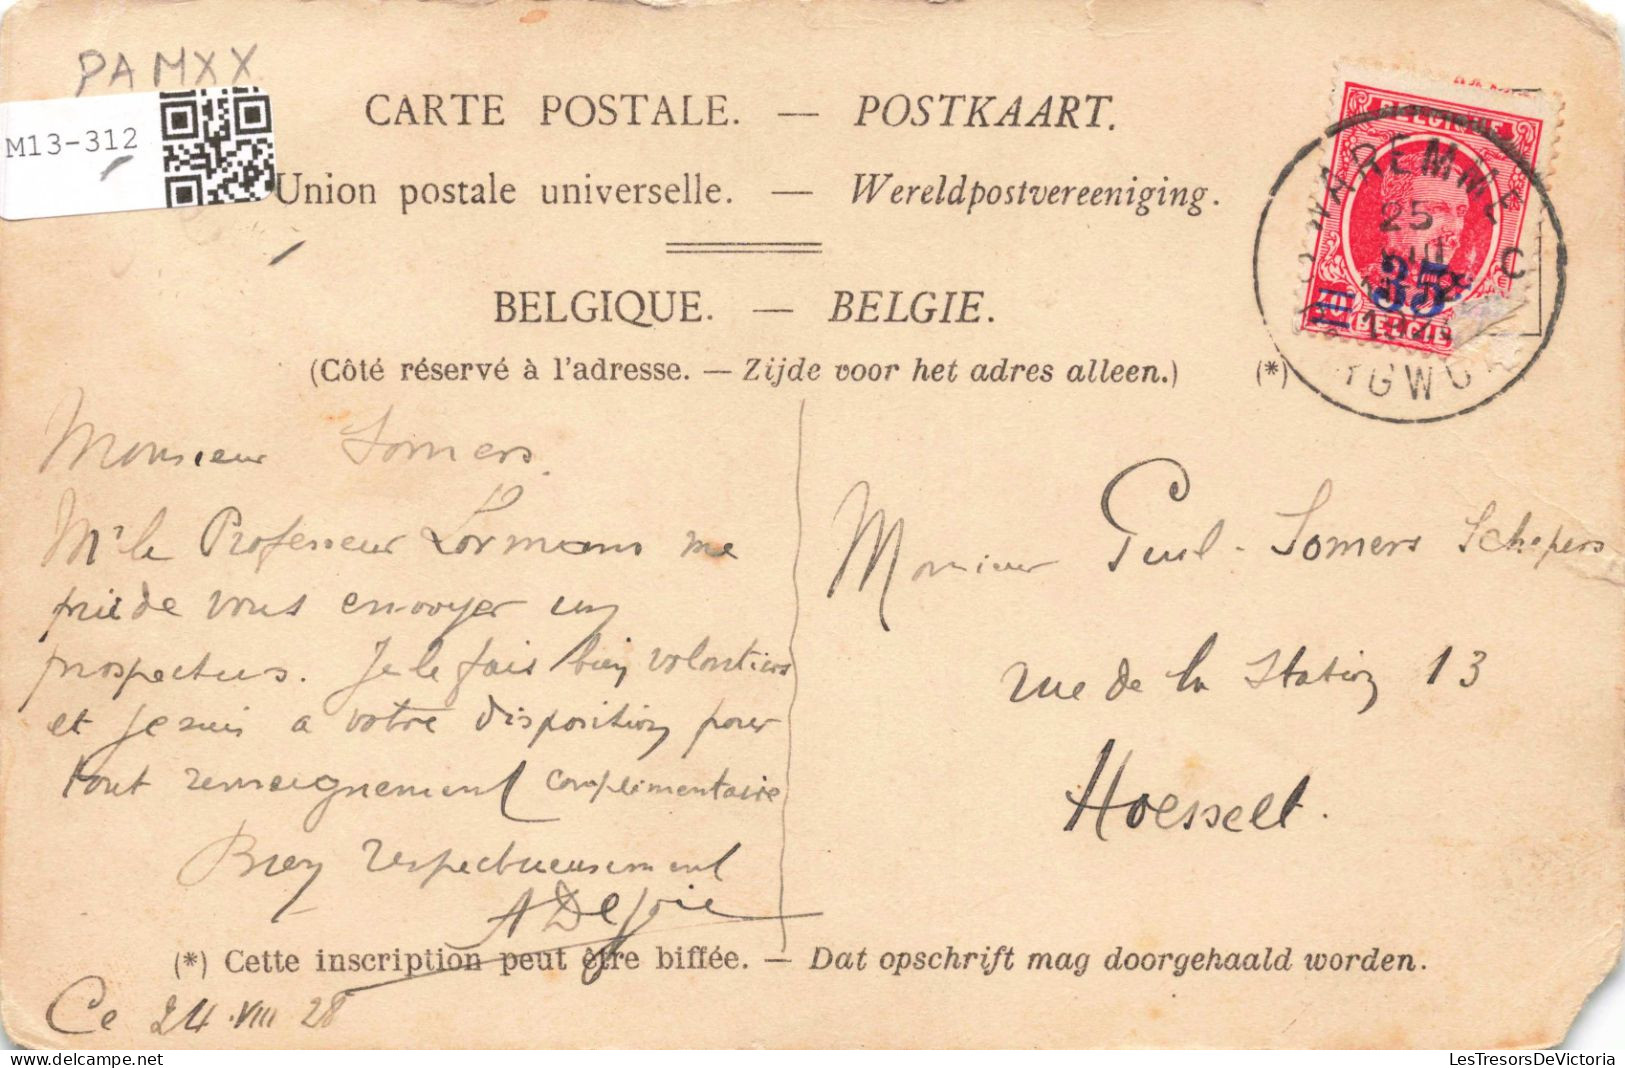 PAMXX
M13-312
CARTE POSTALE. — POSTKAART.
Union postale universelle. — Wereldpostvereeniging.
BELGIQUE. — BELGIE.
(Côté réservé à l'adresse. — Zijde voor het adres alleen.) (*)
BELGIQUE
WAREMME
25
C
35
10
BELGIE
Monsieur Somers.
Mr le Professeur Lormans me
prie de vous envoyer un
prospectus. Je le fais bien volontiers
et je suis a votre disposition pour
tout renseignement complimentaire
Bien respectueusement
A Dejoie
Monsieur Guil - Somers Schepers
rue de la Station 13
Hoesselt.
(*) Cette inscription peut être biffée. — Dat opschrift mag doorgehaald worden.
Ce 24.VIII 28
LesTresorsDeVictoria
www.delcampe.net